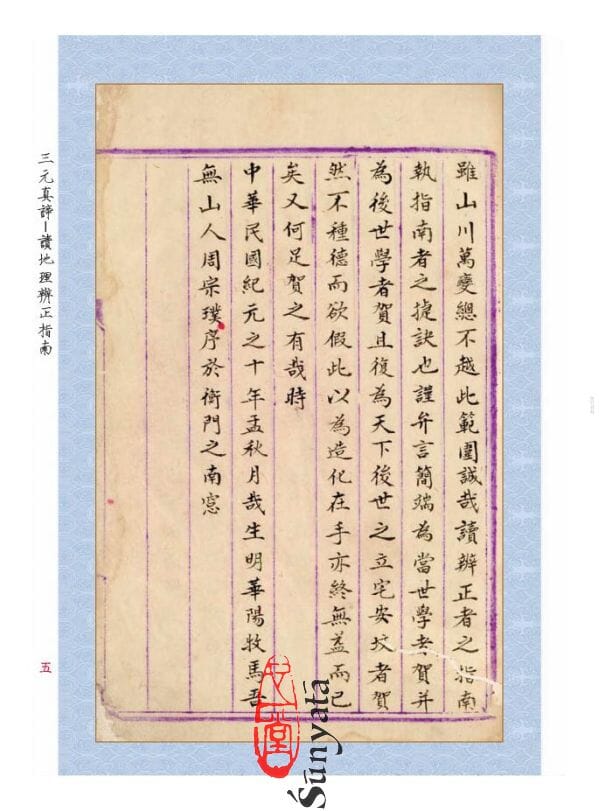 雖山川萬變總不越此範圍誠哉讀辨正者之指南
執指南者之捷訣也謹弁言簡端為當世學者賀并
為後世學者賀且復為天下後世之立宅安坟者賀
然不種德而欲假此以為造化在手亦終無益而已
矣又何足賀之有哉時
中華民國紀元之十年孟秋月哉生明華陽牧馬吾
無山人周宗璞序於衙門之南窓
三元真諦－讀地理辨正指南
五
Śūnyatā